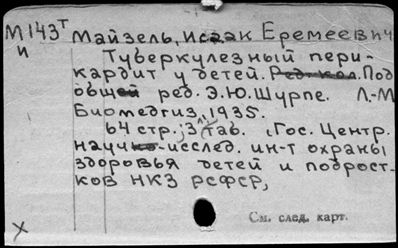 М143т Майзель, Исаак Еремеевич
и Туберкулезный пери-
кардит у детей. Ред. кол. Под
общей ред. Э.Ю. Шурпе. Л.-М
Биомедгиз, 1935.
64 стр., 3 таб. (Гос. Центр.
научно-исслед. ин-т охраны
здоровья детей и подрост-
ков НКЗ РСФСР,
Х См. след. карт.